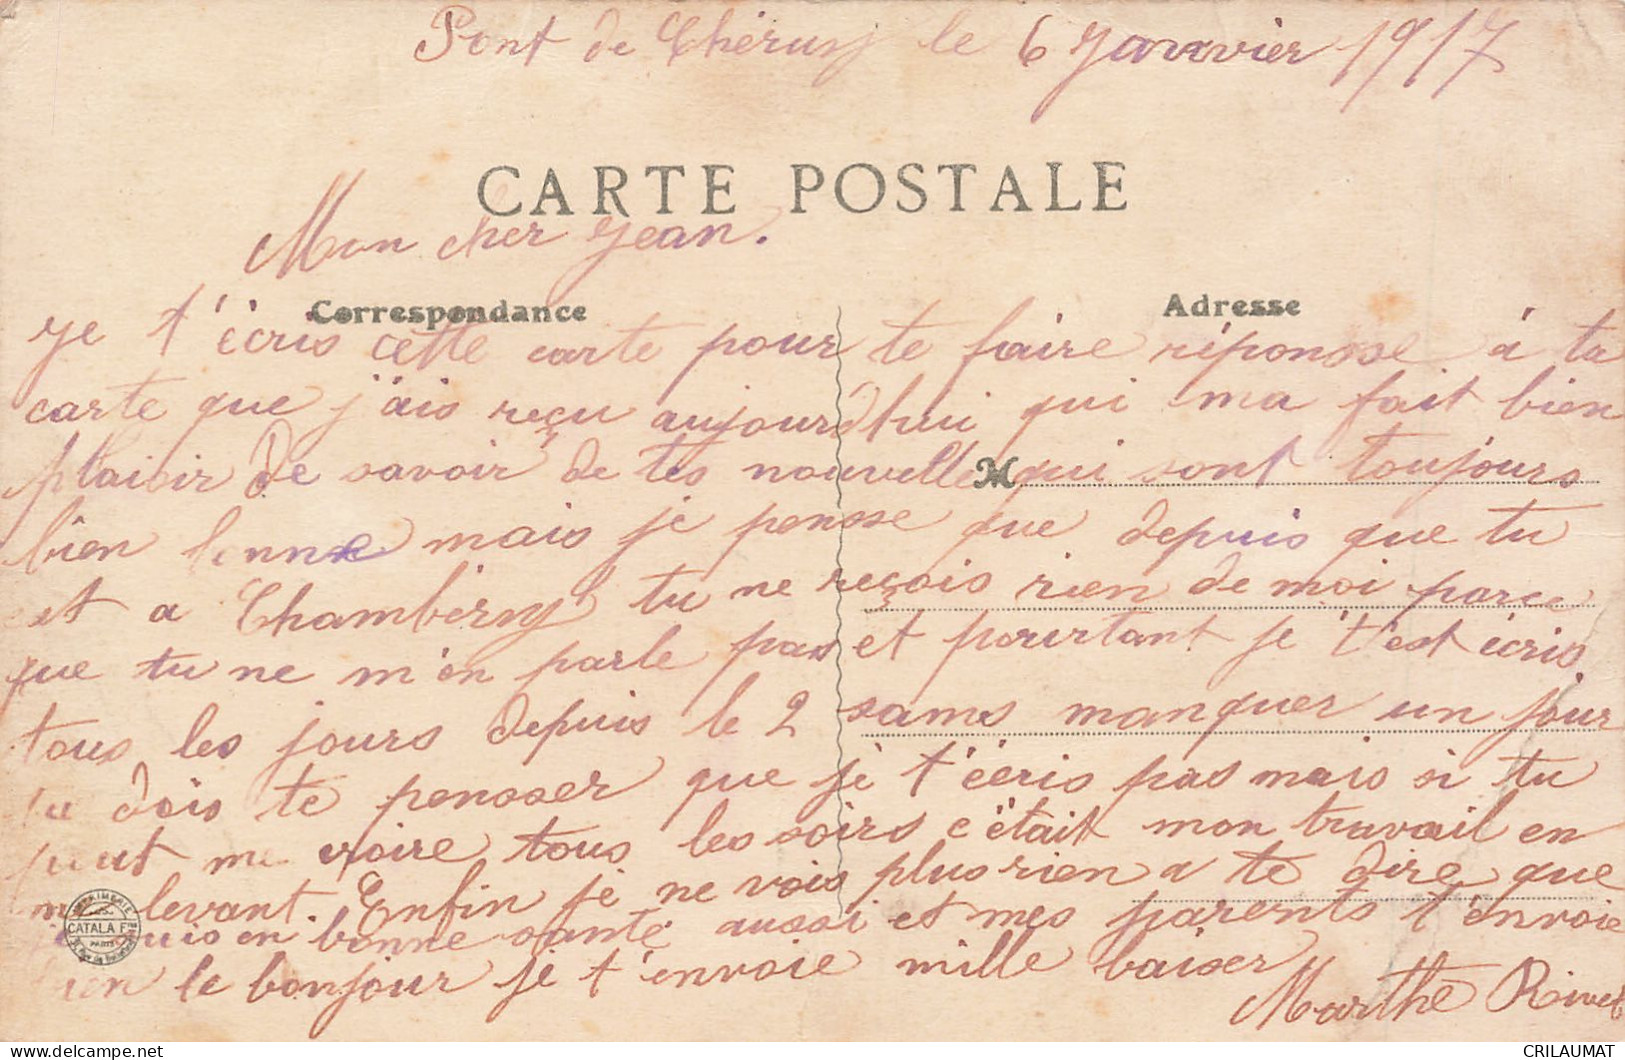 Pont de Chéruy le 6 Janvier 1917
CARTE POSTALE
Mon cher Jean.
Correspondance
Adresse
Je t'écris cette carte pour te faire réponsse à ta
carte que j'ais reçu aujourd'hui qui ma fait bien
plaisir de savoir de tes nouvelle qui sont toujours
M
bien bonne mais je pensse que depuis que tu
et a Chambérny tu ne reçois rien de moi parce
que tu ne m'en parle pas et pourtant je t'est écris
tous les jours depuis le 2 sans manquer un jour
tu dois te pensser que je t'écris pas mais si tu
peut me croire tous les soirs c'était mon travail en
me levant. Enfin je ne vois plus rien a te dire que
je suis en bonne santé aussi et mes parents t'envoie
bien le bonjour je t'envoie mille baiser
Marthe Rivet
IMPRIMERIE
CATALA Fres
PARIS
CRILAUMAT